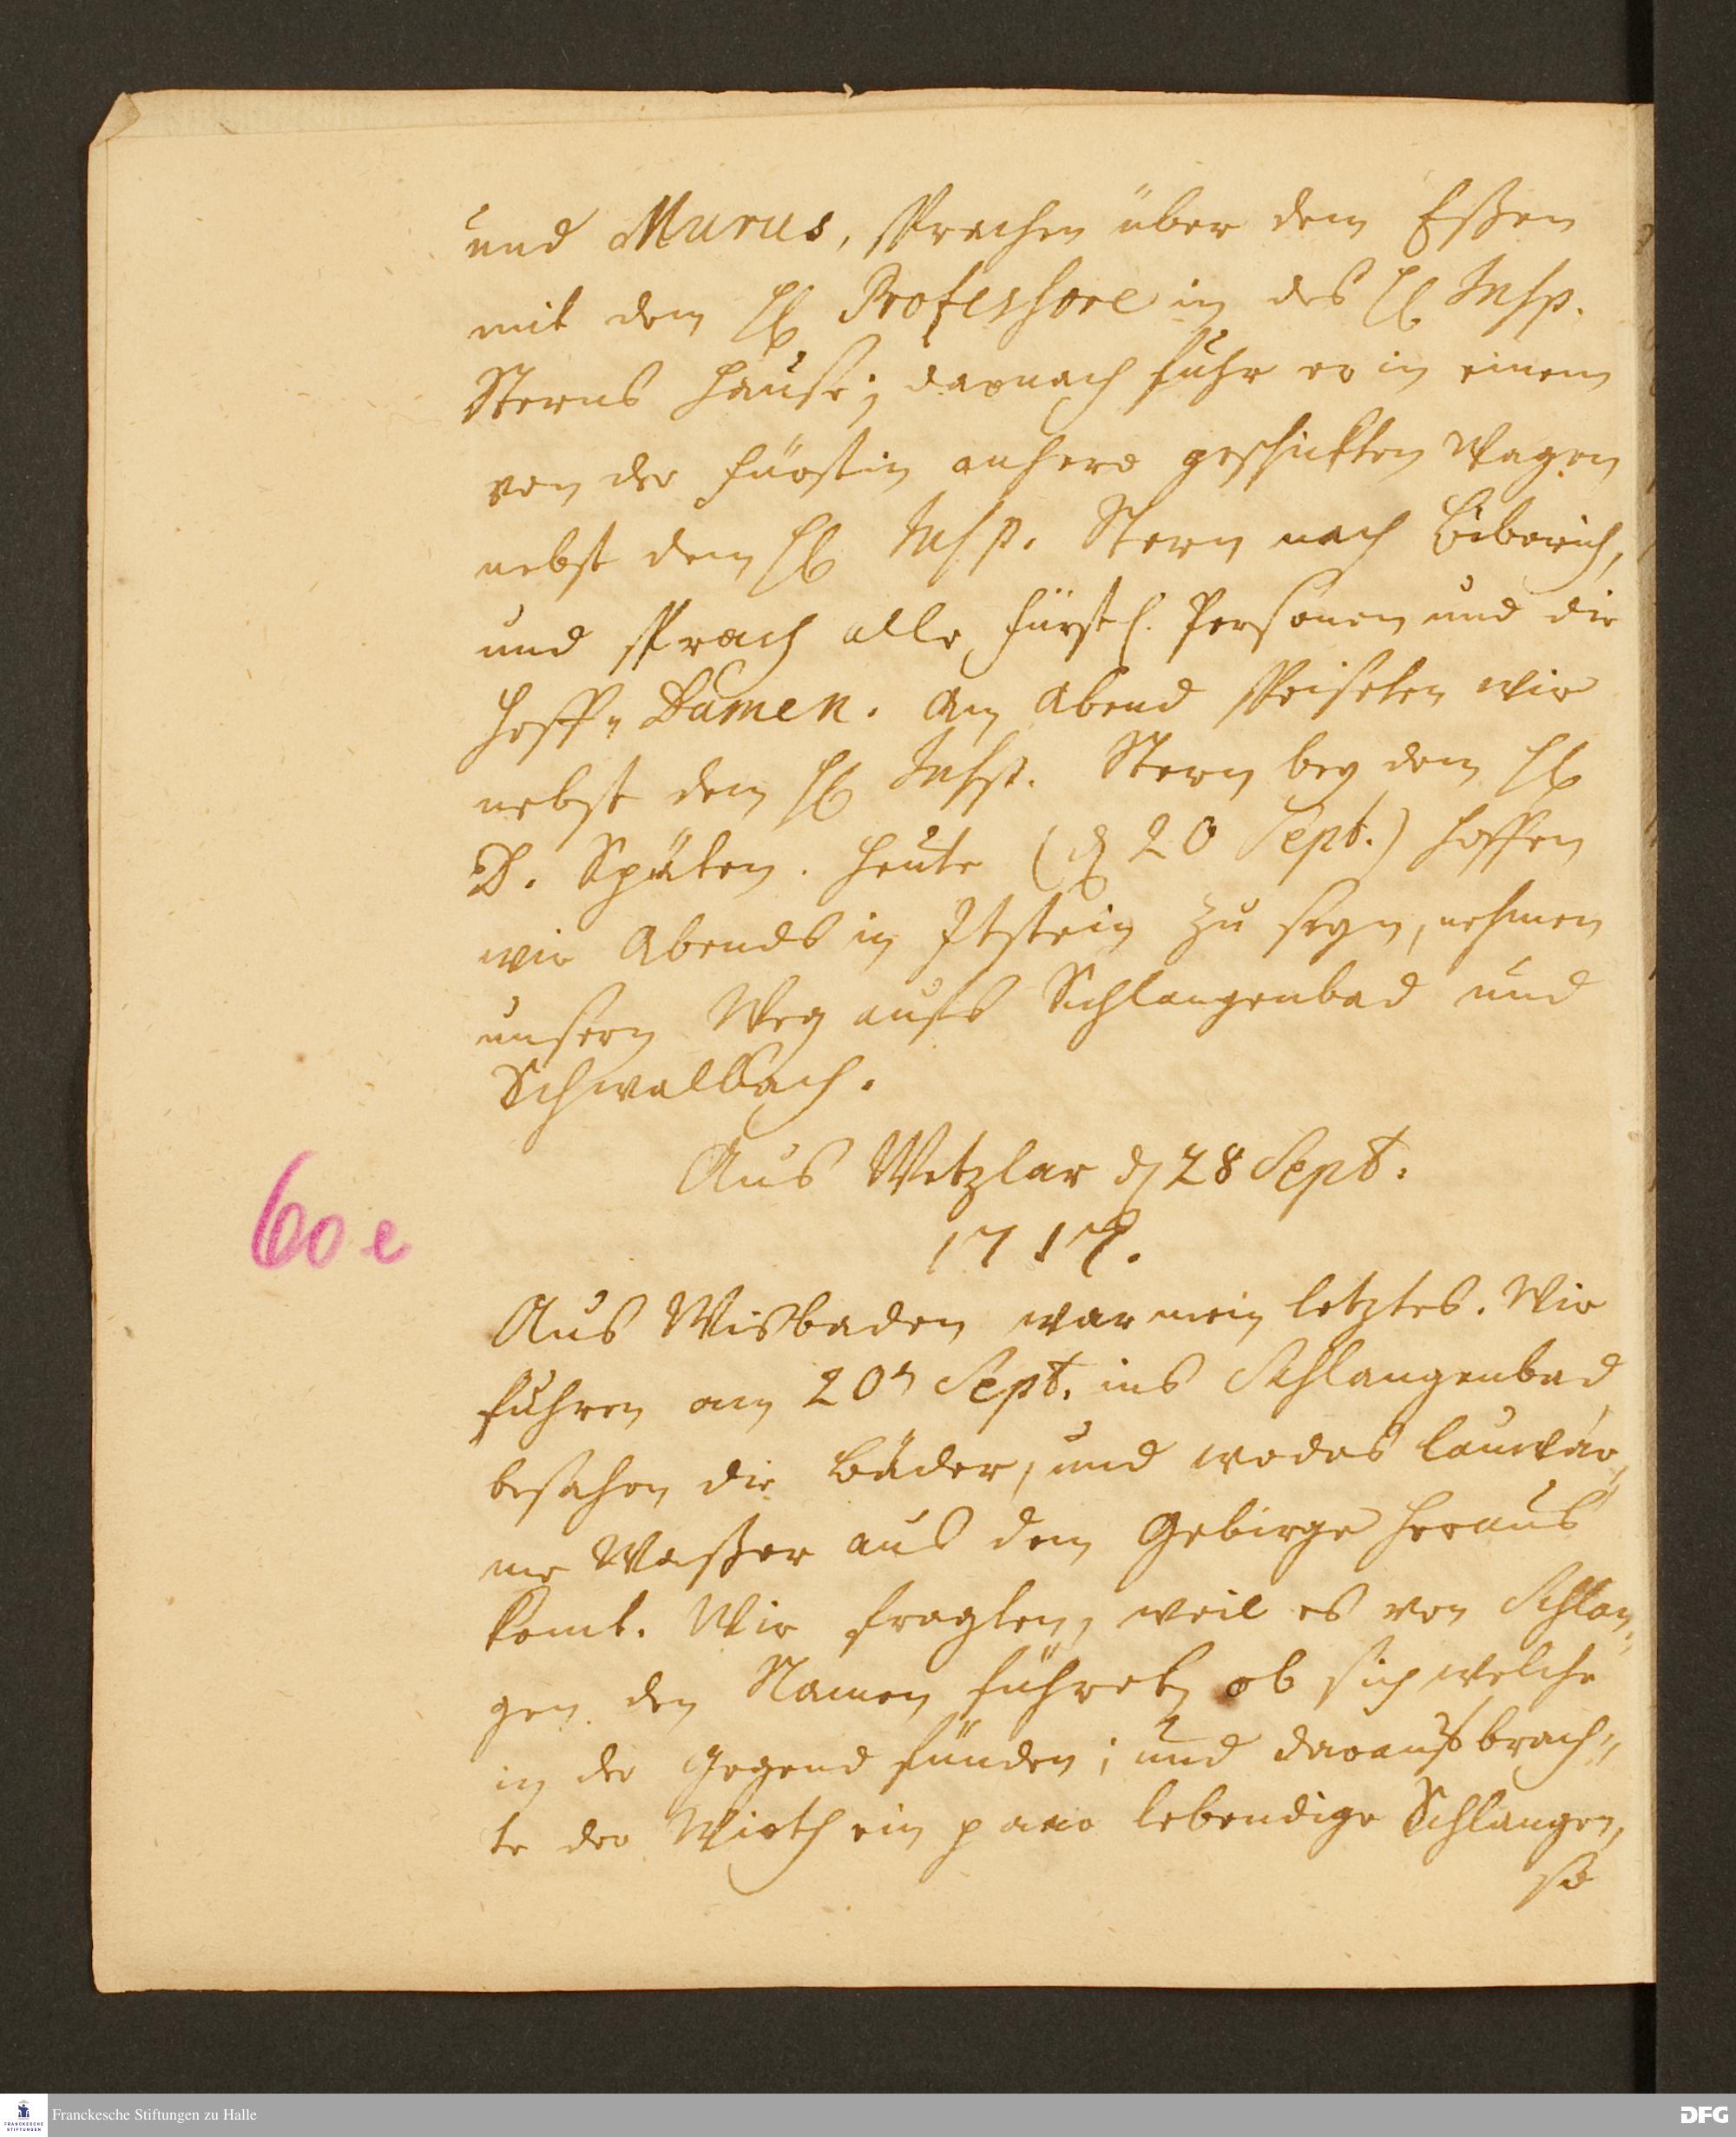 und Murus, sprachen über dem Eßen
mit dem H. Professore in des H. Insp.
Sterns Hause; darnach fuhr er in einem
von der Fürstin anhero geschickten Wagen
nebst dem H. Insp. Stern nach Biberich,
und sprach alle Fürstl. Personen und die
Hoff-Damen. Am Abend speiseten wir
nebst dem H. Insp. Stern bey dem H.
D. Späten. Heute (d. 20 Sept.) hoffen
wir Abends in Itstein zu seyn, nehmen
unsern Weg aufs Schlangenbad und
Schwalbach.
Aus Wetzlar d. 28 Sept.
1717.
60 e
Aus Wisbaden war mein letztes. Wir
fuhren am 20n Sept. ins Schlangenbad
besahen die Bäder, und wo das lauwar-
me Waßer aus dem Gebirge heraus
komt. Wir fragten, weil es von Schlan-
gen den Namen führet, ob sich welche
in der Gegend fünden; und darauf brach-
te der Wirth ein paar lebendige Schlangen,
so
Franckesche Stiftungen zu Halle
FRANCKESCHE
STIFTUNGEN
DFG